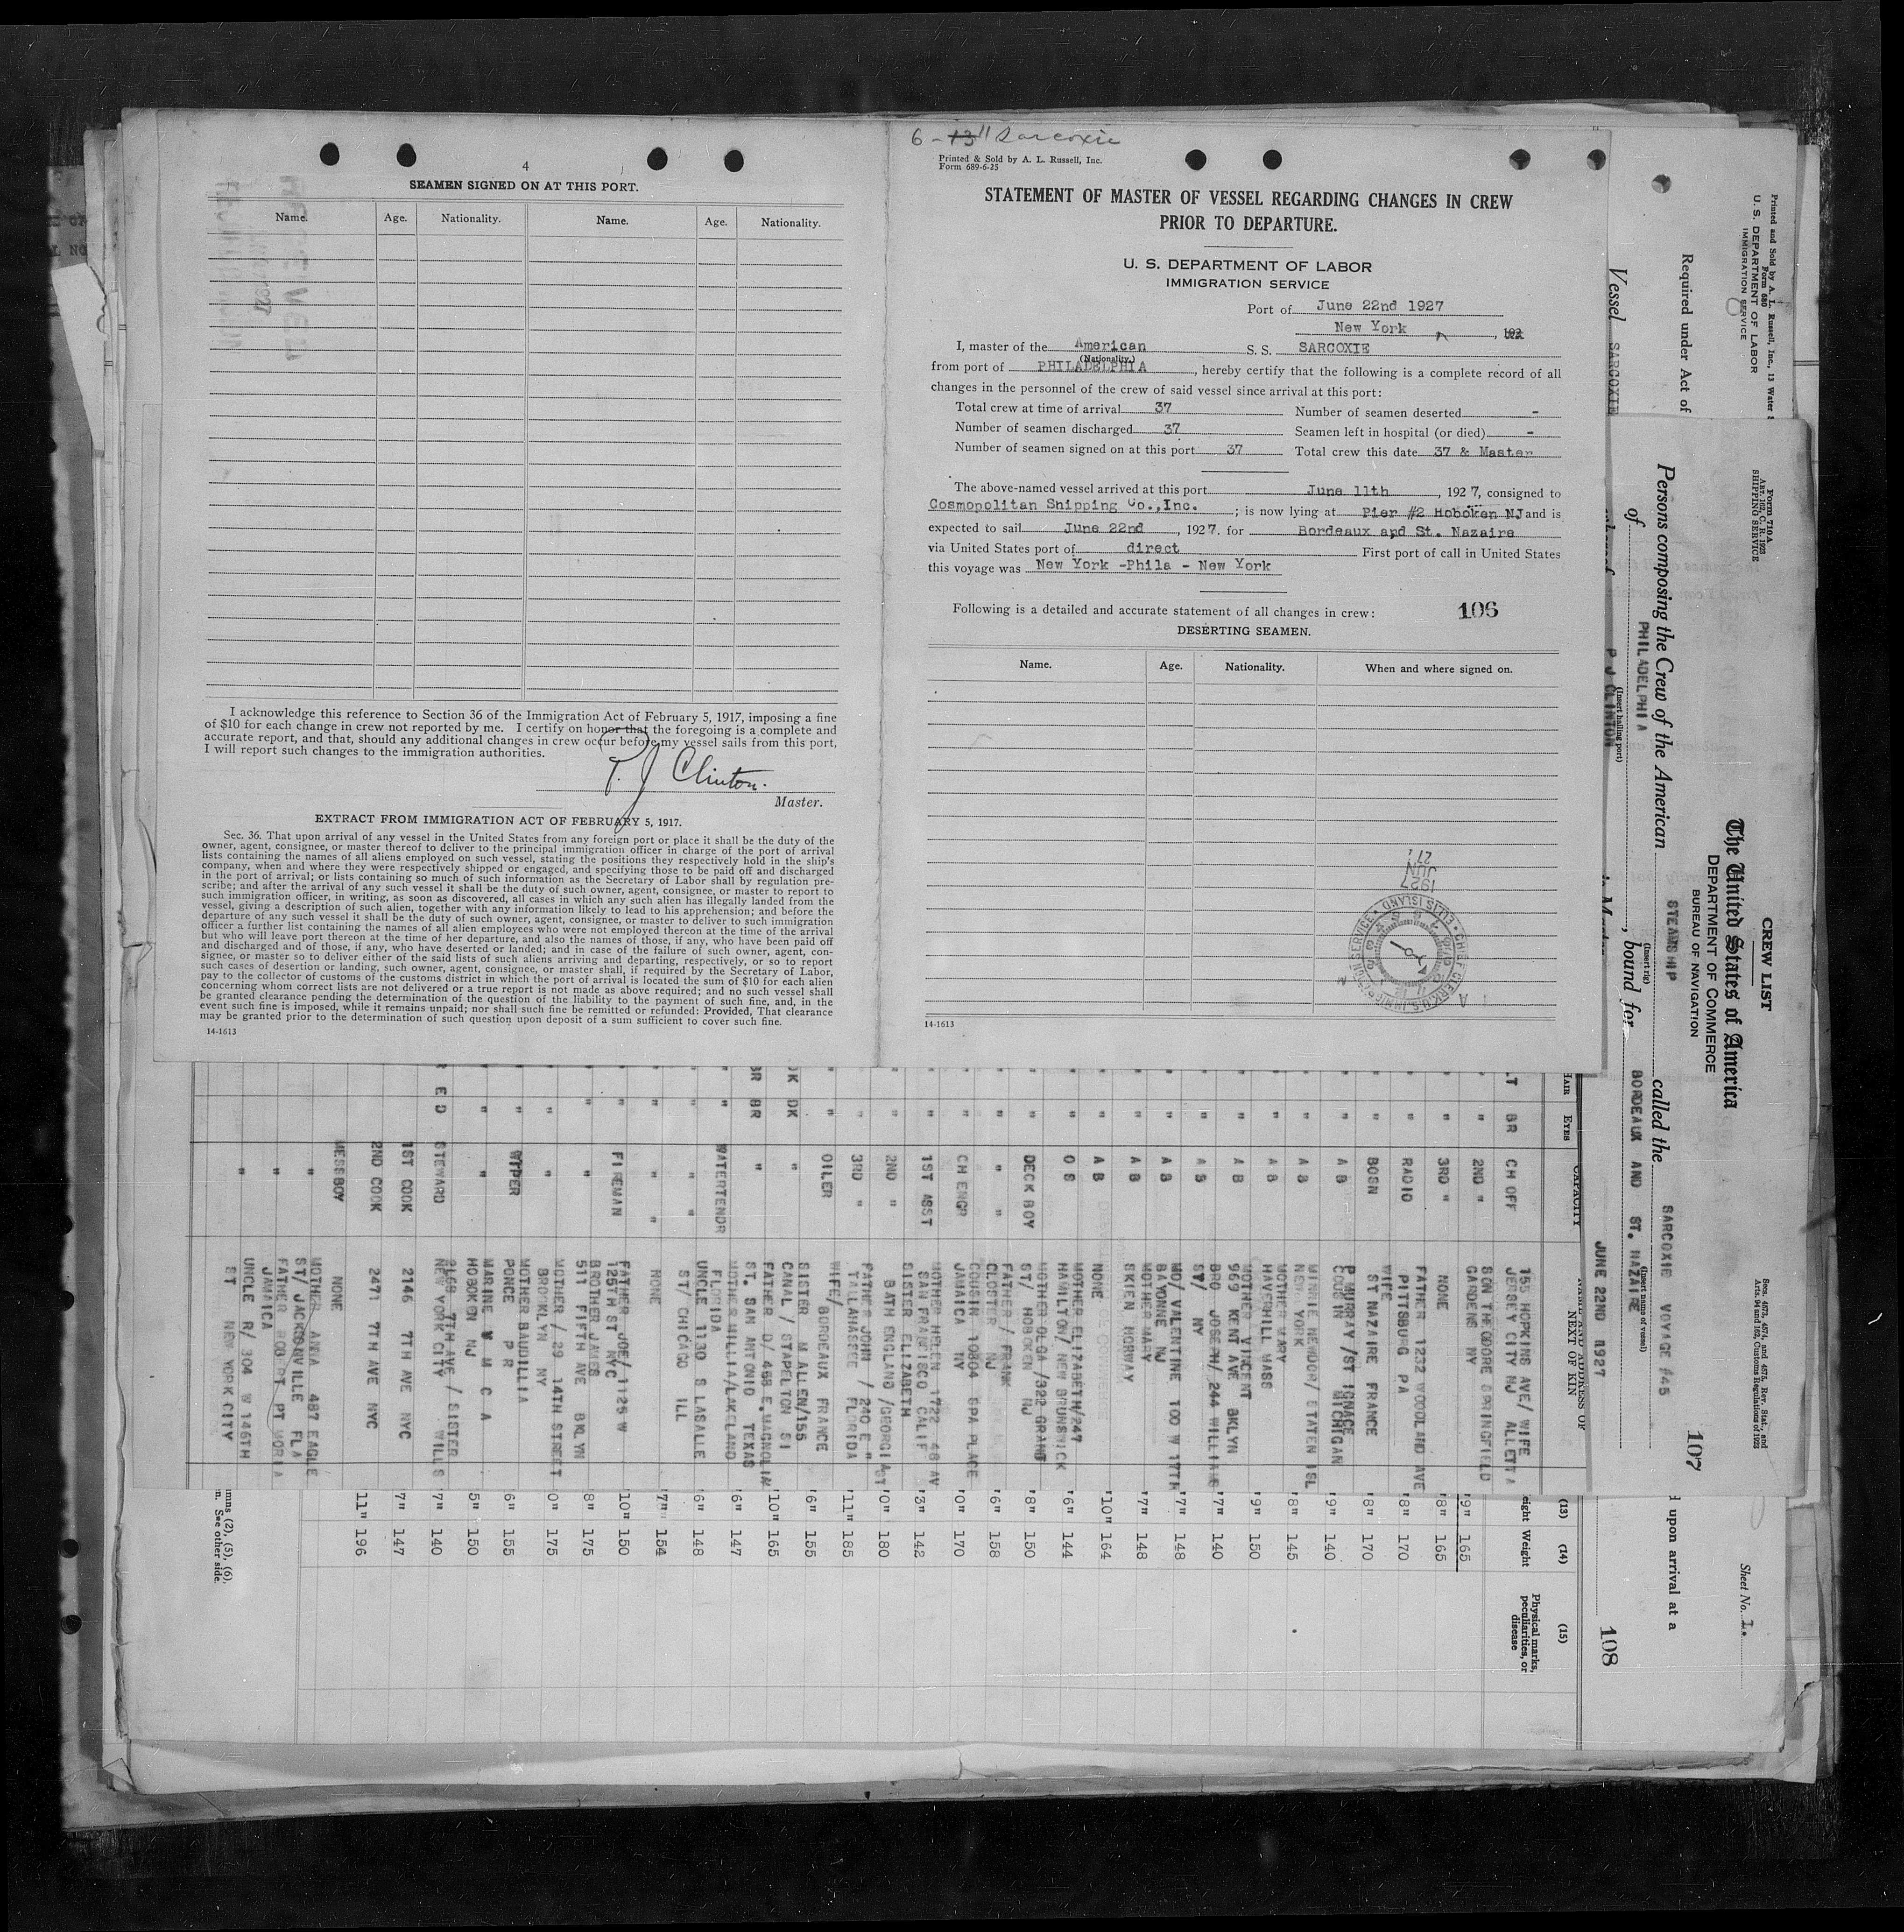 4
SEAMEN SIGNED ON AT THIS PORT.
Name. Age. Nationality. Name. Age. Nationality.
I acknowledge this reference to Section 36 of the Immigration Act of February 5, 1917, imposing a fine
of $10 for each change in crew not reported by me. I certify on honor that the foregoing is a complete and
accurate report, and that, should any additional changes in crew occur before my vessel sails from this port,
I will report such changes to the immigration authorities.
P. J Clinton.
Master.
EXTRACT FROM IMMIGRATION ACT OF FEBRUARY 5, 1917.
Sec. 36. That upon arrival of any vessel in the United States from any foreign port or place it shall be the duty of the
owner, agent, consignee, or master thereof to deliver to the principal immigration officer in charge of the port of arrival
lists containing the names of all aliens employed on such vessel, stating the positions they respectively hold in the ship's
company, when and where they were respectively shipped or engaged, and specifying those to be paid off and discharged
in the port of arrival; or lists containing so much of such information as the Secretary of Labor shall by regulation pre-
scribe; and after the arrival of any such vessel it shall be the duty of such owner, agent, consignee, or master to report to
such immigration officer, in writing, as soon as discovered, all cases in which any such alien has illegally landed from the
vessel, giving a description of such alien, together with any information likely to lead to his apprehension; and before the
departure of any such vessel it shall be the duty of such owner, agent, consignee, or master to deliver to such immigration
officer a further list containing the names of all alien employees who were not employed thereon at the time of the arrival
but who will leave port thereon at the time of her departure, and also the names of those, if any, who have been paid off
and discharged and of those, if any, who have deserted or landed; and in case of the failure of such owner, agent, con-
signee, or master so to deliver either of the said lists of such aliens arriving and departing, respectively, or so to report
such cases of desertion or landing, such owner, agent, consignee, or master shall, if required by the Secretary of Labor,
pay to the collector of customs of the customs district in which the port of arrival is located the sum of $10 for each alien
concerning whom correct lists are not delivered or a true report is not made as above required; and no such vessel shall
be granted clearance pending the determination of the question of the liability to the payment of such fine, and, in the
event such fine is imposed, while it remains unpaid; nor shall such fine be remitted or refunded: Provided, That clearance
may be granted prior to the determination of such question upon deposit of a sum sufficient to cover such fine.
14-1613
6-13 11 Sarcoxie
Printed & Sold by A. L. Russell, Inc.
Form 689-6-25
STATEMENT OF MASTER OF VESSEL REGARDING CHANGES IN CREW
PRIOR TO DEPARTURE.
U. S. DEPARTMENT OF LABOR
IMMIGRATION SERVICE
Port of June 22nd 1927
New York , 192
I, master of the American S. S. SARCOXIE
(Nationality.)
from port of PHILADELPHIA, hereby certify that the following is a complete record of all
changes in the personnel of the crew of said vessel since arrival at this port:
Total crew at time of arrival 37 Number of seamen deserted -
Number of seamen discharged 37 Seamen left in hospital (or died) -
Number of seamen signed on at this port 37 Total crew this date 37 & Master
The above-named vessel arrived at this port June 11th, 1927, consigned to
Cosmopolitan Shipping Co.,Inc. ; is now lying at Pier #2 Hoboken NJ and is
expected to sail June 22nd, 1927. for Bordeaux and St. Nazaire
via United States port of direct First port of call in United States
this voyage was New York -Phila - New York
Following is a detailed and accurate statement of all changes in crew: 106
DESERTING SEAMEN.
Name. Age. Nationality. When and where signed on.
JUN 27
1927
CHIEF CLERK U.S. IMMIGRATION SERVICE ELLIS ISLAND
14-1613
Printed and Sold by A. L. Russell, Inc., 13 Water
Form 680
U. S. DEPARTMENT OF LABOR
IMMIGRATION SERVICE
Required under Act of
Vessel SARCOXIE
upon arrival at a
Sheet No. 1.
108
Form 710 A
SHIPPING SERVICE
CREW LIST
The United States of America
DEPARTMENT OF COMMERCE
BUREAU OF NAVIGATION
107
Persons composing the Crew of the American STEAMSHIP called the SARCOXIE VOYAGE #45
(Insert rig) (Insert name of vessel)
of PHILADELPHIA, bound for BORDEAUX AND ST. NAZAIRE
(Insert hailing port)
P J CLINTON
JUNE 22ND
HAIR EYES CAPACITY NAME AND ADDRESS OF NEXT OF KIN
BR CH OFF 155 HOPKINS AVE/ WIFE JERSEY CITY NJ ALLETTA
" 2ND " SON THEODORE SPRINGFIELD GARDENS NY
" 3RD " NONE
" RADIO FATHER 1232 WOODLAND AVE PITTSBURG PA
" BOSN WIFE ST NAZAIRE FRANCE
" A B P MURRAY /ST IGNACE COUSIN MICHIGAN
" A B STATEN ISL NEW YORK
" A B MOTHER MARY HAVERHILL MASS
" A B MOTHER VINCENT 969 KENT AVE BKLYN
" A B BRO JOSEPH/ 244 WILLIAMS ST/ NY
" A B MO/ VALENTINE 100 W 17TH BAYONNE NJ
" A B MOTHER MARY SKIEN NORWAY
" A B NONE
" O S MOTHER ELIZABETH/247 HAMILTON/ NEW BRUNSWICK
" DECK BOY MOTHER OLGA /322 GRAND ST/ HOBOKEN NJ
" " FATHER / FRANK CLOSTER NJ
" CH ENGR COUSIN 10804 SPA PLACE JAMAICA NY
" 1ST ASST MOTHER HELEN 1722 48 AV SAN FRANCISCO CALIF
" 2ND " SISTER ELIZABETH BATH ENGLAND
" 3RD " FATHER JOHN / 240 E GEORGIA ST TALLAHASSEE FLORIDA
" OILER WIFE/ BORDEAUX FRANCE
DK DK " SISTER M ALLEN/155 CANAL / STAPELTON SI
BR BR " FATHER D/ 468 E.MAGNOLIA ST. SAN ANTONIO TEXAS
" WATERTENDR MOTHER MILLIA/LAKELAND FLORIDA
" " UNCLE 1130 S LASALLE ST/ CHICAGO ILL
" " NONE
" FIREMAN FATHER JOE/ 1125 W 125TH ST NYC
" " BROTHER JAMES 511 FIFTH AVE BKLYN
" " MOTHER / 29 14TH STREET BROOKLYN NY
" WIPER MOTHER BAUDILLIA PONCE P R
" " MARINE M M C A HOBOKEN NJ
STEWARD 2168 7TH AVE / SISTER NEW YORK CITY WILLS
1ST COOK 2146 7TH AVE NYC
2ND COOK 2471 7TH AVE NYC
MESSBOY NONE
" MOTHER ANNA 487 EAGLE ST/ JACKSONVILLE FLA
" FATHER ROBERT PT MORIA JAMAICA
" UNCLE R/ 304 W 146TH ST NEW YORK CITY
(13) (14) (15)
Weight
Physical marks, peculiarities, or disease
9" 165
8" 165
8" 170
8" 170
9" 140
8" 145
9" 150
7" 140
7" 148
7" 148
10" 164
6" 144
8" 150
6" 158
0" 170
3" 142
0" 180
11" 185
6" 155
10" 165
6" 147
6" 148
7" 154
10" 150
8" 175
0" 175
6" 155
5" 150
7" 140
7" 147
11" 196
See other side.